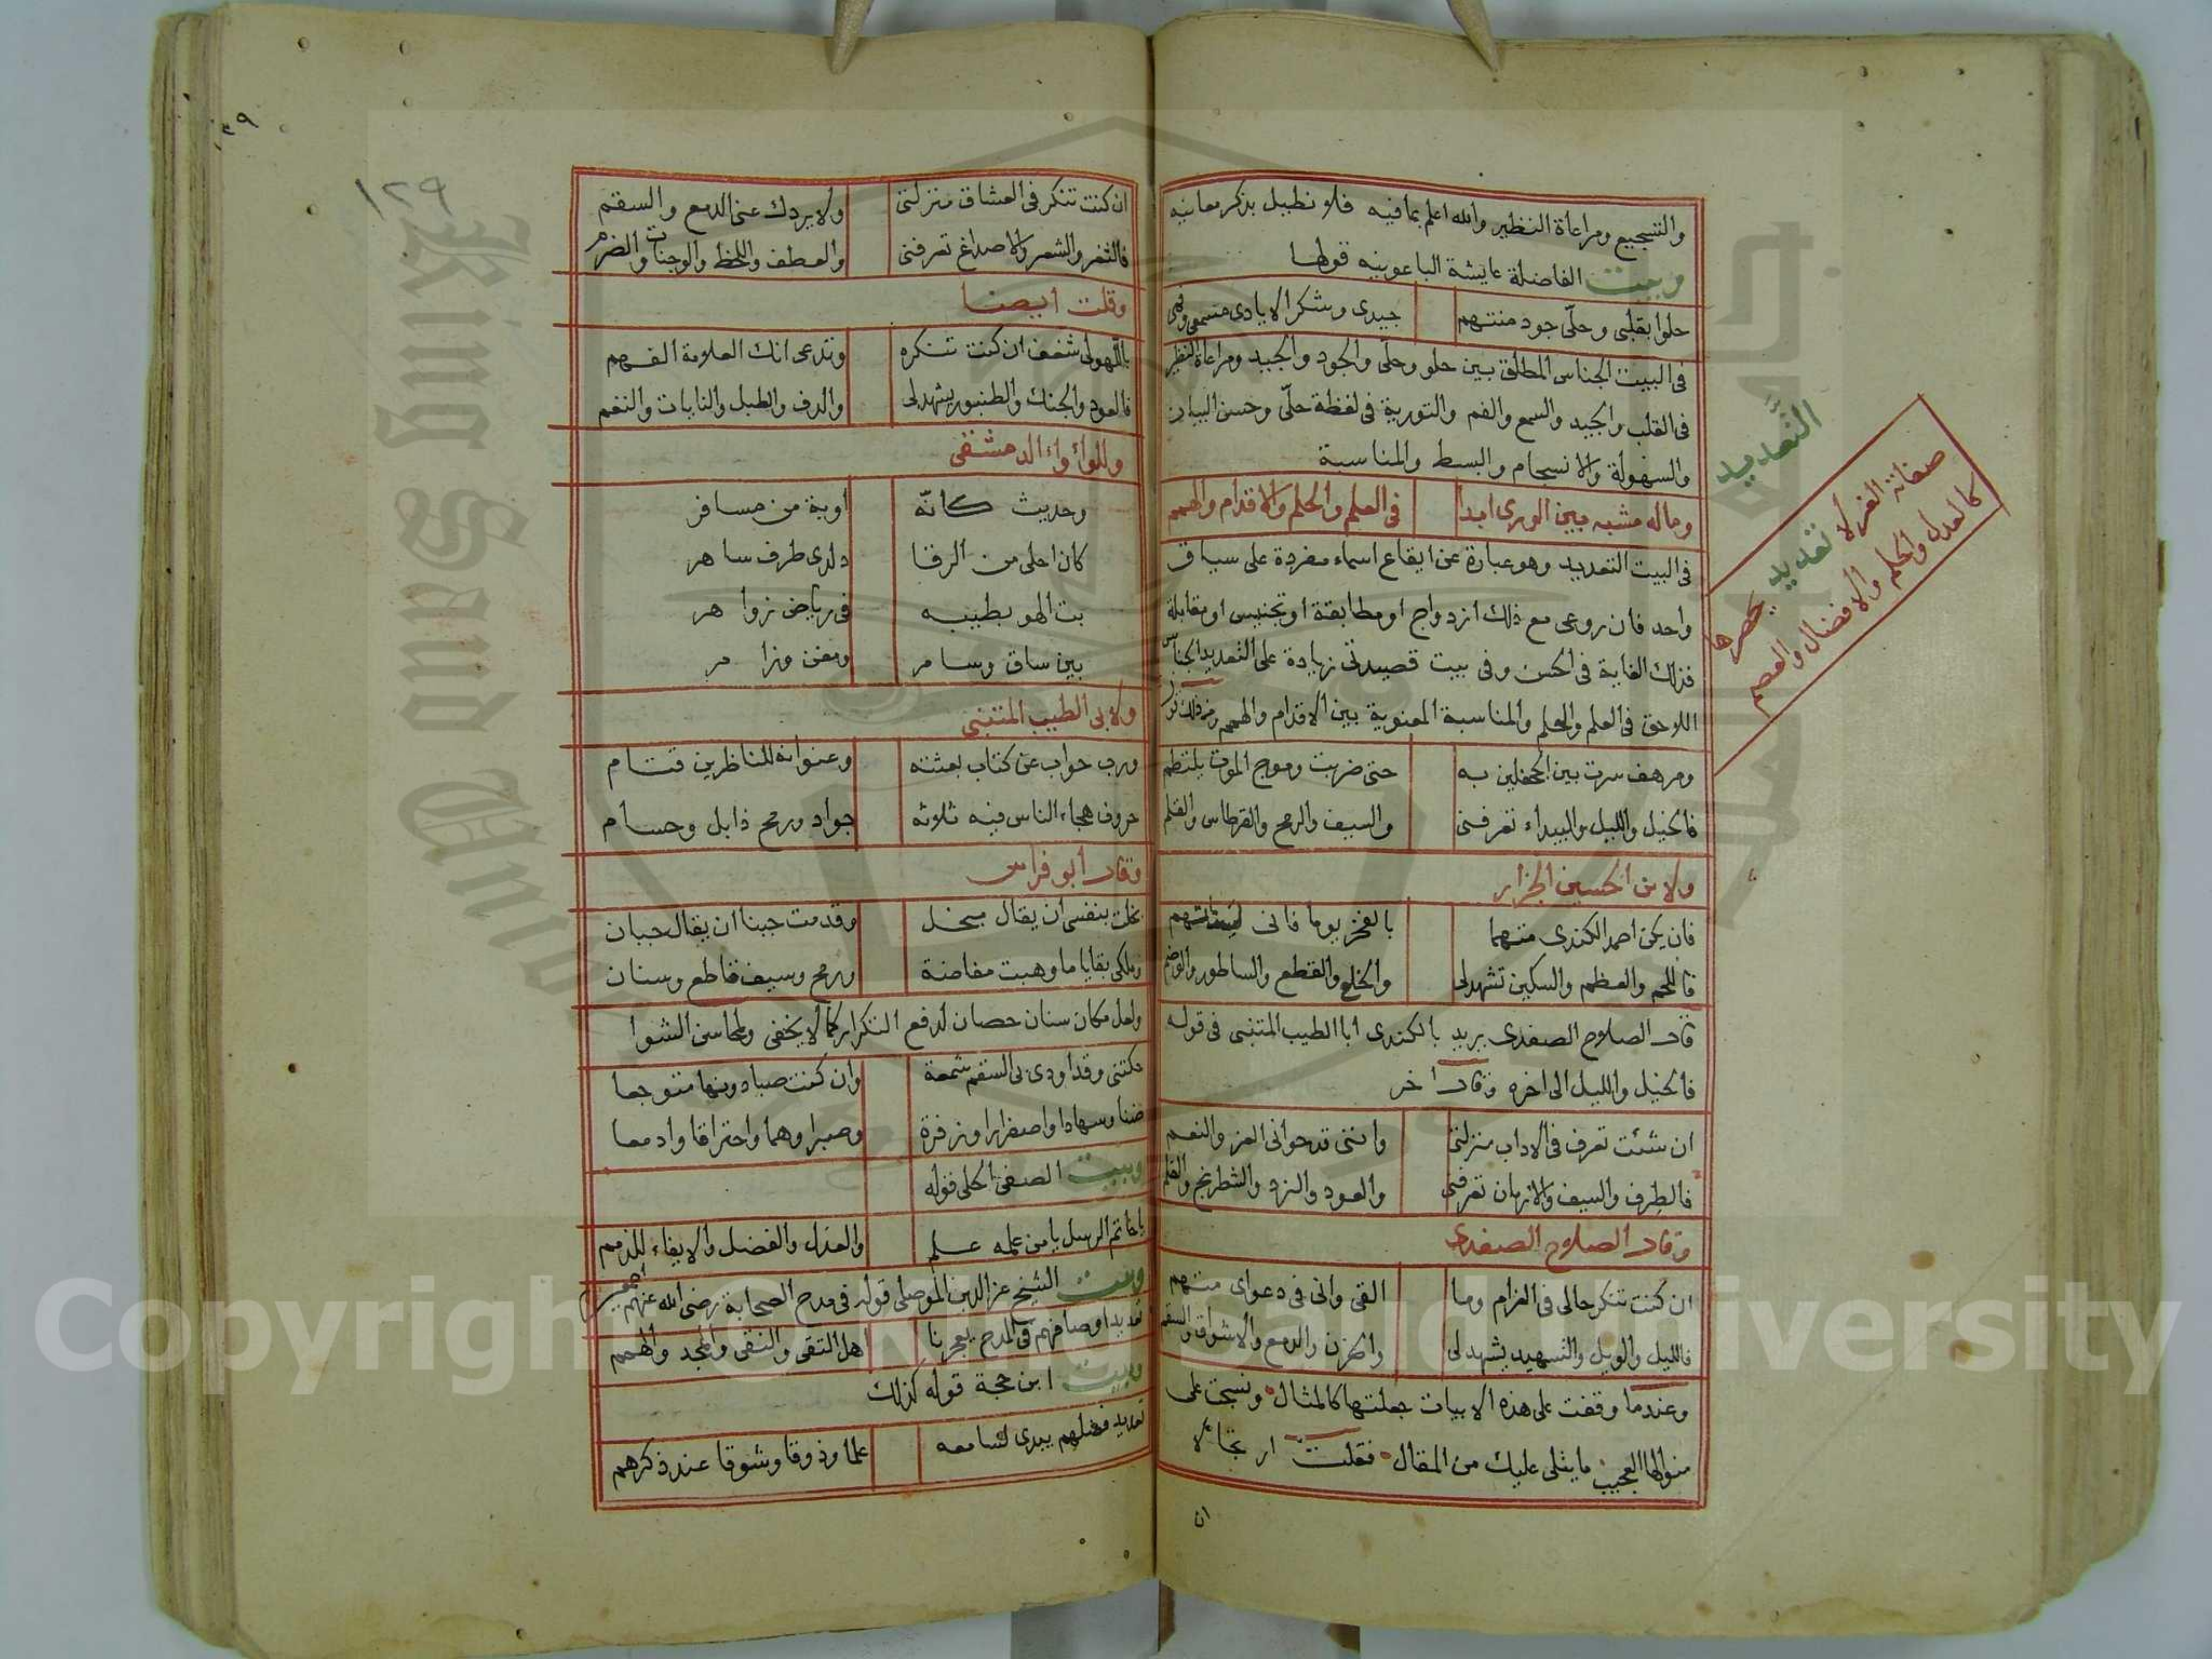 والتسجيع ومراعاة النظير والله اعلم بما فيه فلا نطيل بذكر معانيه
وبيت الفاضلة عايشة الباعونيه قولها
حلوا بقلبي وحلّى جود منتهم جيدى وشكر الايادى مسمعي وفمى
فى البيت الجناس المطلق بين حلو وحلّى والجود والجيد ومراعاة النظير
فى القلب والجيد والسمع والفم والتورية فى لفظة حلّى وحسن البيان
والسهولة والانسجام والبسط والمناسبة
وماله مشبه بين الورى ابدا فى العلم والحلم والاقدام والهمم
فى البيت التعديد وهو عبارة عن ايقاع اسماء مفردة على سياق
واحد فان روعى مع ذلك ازدواج او مطابقة او تجنيس او مقابلة
فذلك الغاية فى الحسن وفى بيت قصيدتى زيادة على التعديد الجناس
اللاحق فى العلم والحلم والمناسبة المعنوية بين الاقدام والهمم ومن ذلك
ومرهف سرت بين الجحفلين به حتى ضربت وموج الموت يلتطم
فالخيل والليل والبيداء تعرفنى والسيف والرمح والقرطاس والقلم
ولابن الحسين الجزار
فان يكن احمد الكندى متهما بالفخر يوما فانى
فاللحم والعظم والسكين تشهد لى والخلع والقطع والساطور والوضم
قال الصلاح الصفدى يريد بالكندى ابا الطيب المتنبى فى قوله
فالخيل والليل الى اخره وقال اخر
ان شئت تعرف فى الاداب منزلتى واننى قد حوانى العز والنعم
فالطرف والسيف والازمان تعرفنى والعود والنرد والشطرنج والقلم
وقال الصلاح الصفدى
ان كنت تنكر حالى فى الغرام وما القى وانى فى دعواى متهم
فالليل والويل والتسهيد يشهد لى والحزن والدمع والاشواق والسقم
وعندما وقفت على هذه الابيات جعلتها كالمثال ونسجت على
منوالها العجيب ما يتلى عليك من المقال فقلت ارتجالا
ان
التعديد
صفاته الغر لا تعديد يحصرها
كالعدل والحلم والافضال والعصم
١٢٩
ان كنت تنكر فى العشاق منزلتى ولا يردك عنى الدمع والسقم
فالثغر والشعر والاصداغ تعرفنى والعطف واللحظ والوجنات والضرم
وقلت ايضا
باللهو لى شغف ان كنت تنكره وتدعى انك العلامة الفهم
فالعود والجنك والطنبور يشهد لى والدف والطبل والنايات والنغم
وللوأواء الدمشقى
وحديث كانّه اوبة من مسافر
كان احلى من الرقا د لدى طرف ساهر
بت الهو بطيبه فى رياض زواهر
بين ساق وسامر ومغن وزامر
ولابى الطيب المتنبى
ورب جواب عن كتاب بعثته وعنوانه للناظرين قتام
حروف هجاء الناس فيه ثلاثة جواد ورمح ذابل وحسام
وقال أبو فراس
بخلت بنفسى ان يقال مبخل وقدمت جبنا ان يقال جبان
وملكى بقايا ما وهبت مفاضة ورمح وسيف قاطع وسنان
ولعل مكان سنان حصان لدفع التكرار كما لا يخفى ولمحاسن الشوا
حكتنى وقد اودى بى السقم شمعة وان كنت صبا دونها متوجعا
ضنا وسهادا واصفرارا وزفرة وصبرا وهما واحتراقا وادمعا
وبيت الصفى الحلى قوله
يا خاتم الرسل يا من علمه علم والعدل والفضل والايفاء للذمم
وبيت الشيخ عز الدين الموصلى قوله فى مدح الصحابة رضى الله عنهم اجمعين
تعديد اوصافهم فى المدح يعجزنا اهل التقى والنقى والمجد والهمم
وبيت ابن حجة قوله كذلك
تعديد فضلهم يبدى لسامعه علما وذوقا وشوقا عند ذكرهم
Copyright © King Saud University